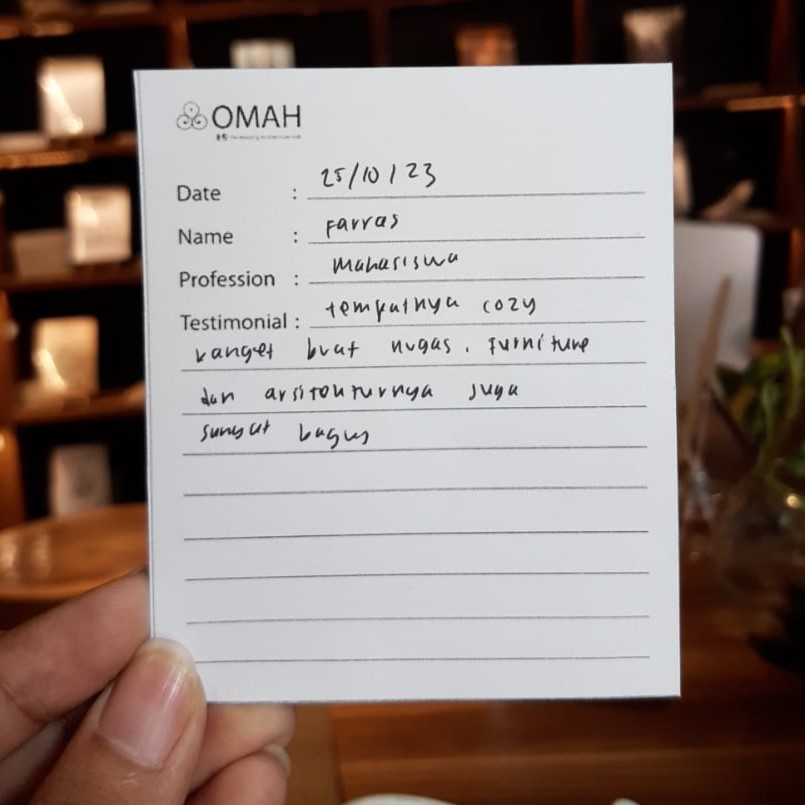 OMAH
Date : 25/10/23
Name : Farras
Profession : Mahasiswa
Testimonial : tempatnya cozy
banget buat nugas. Furniture
dan arsitekturnya juga
sangat bagus